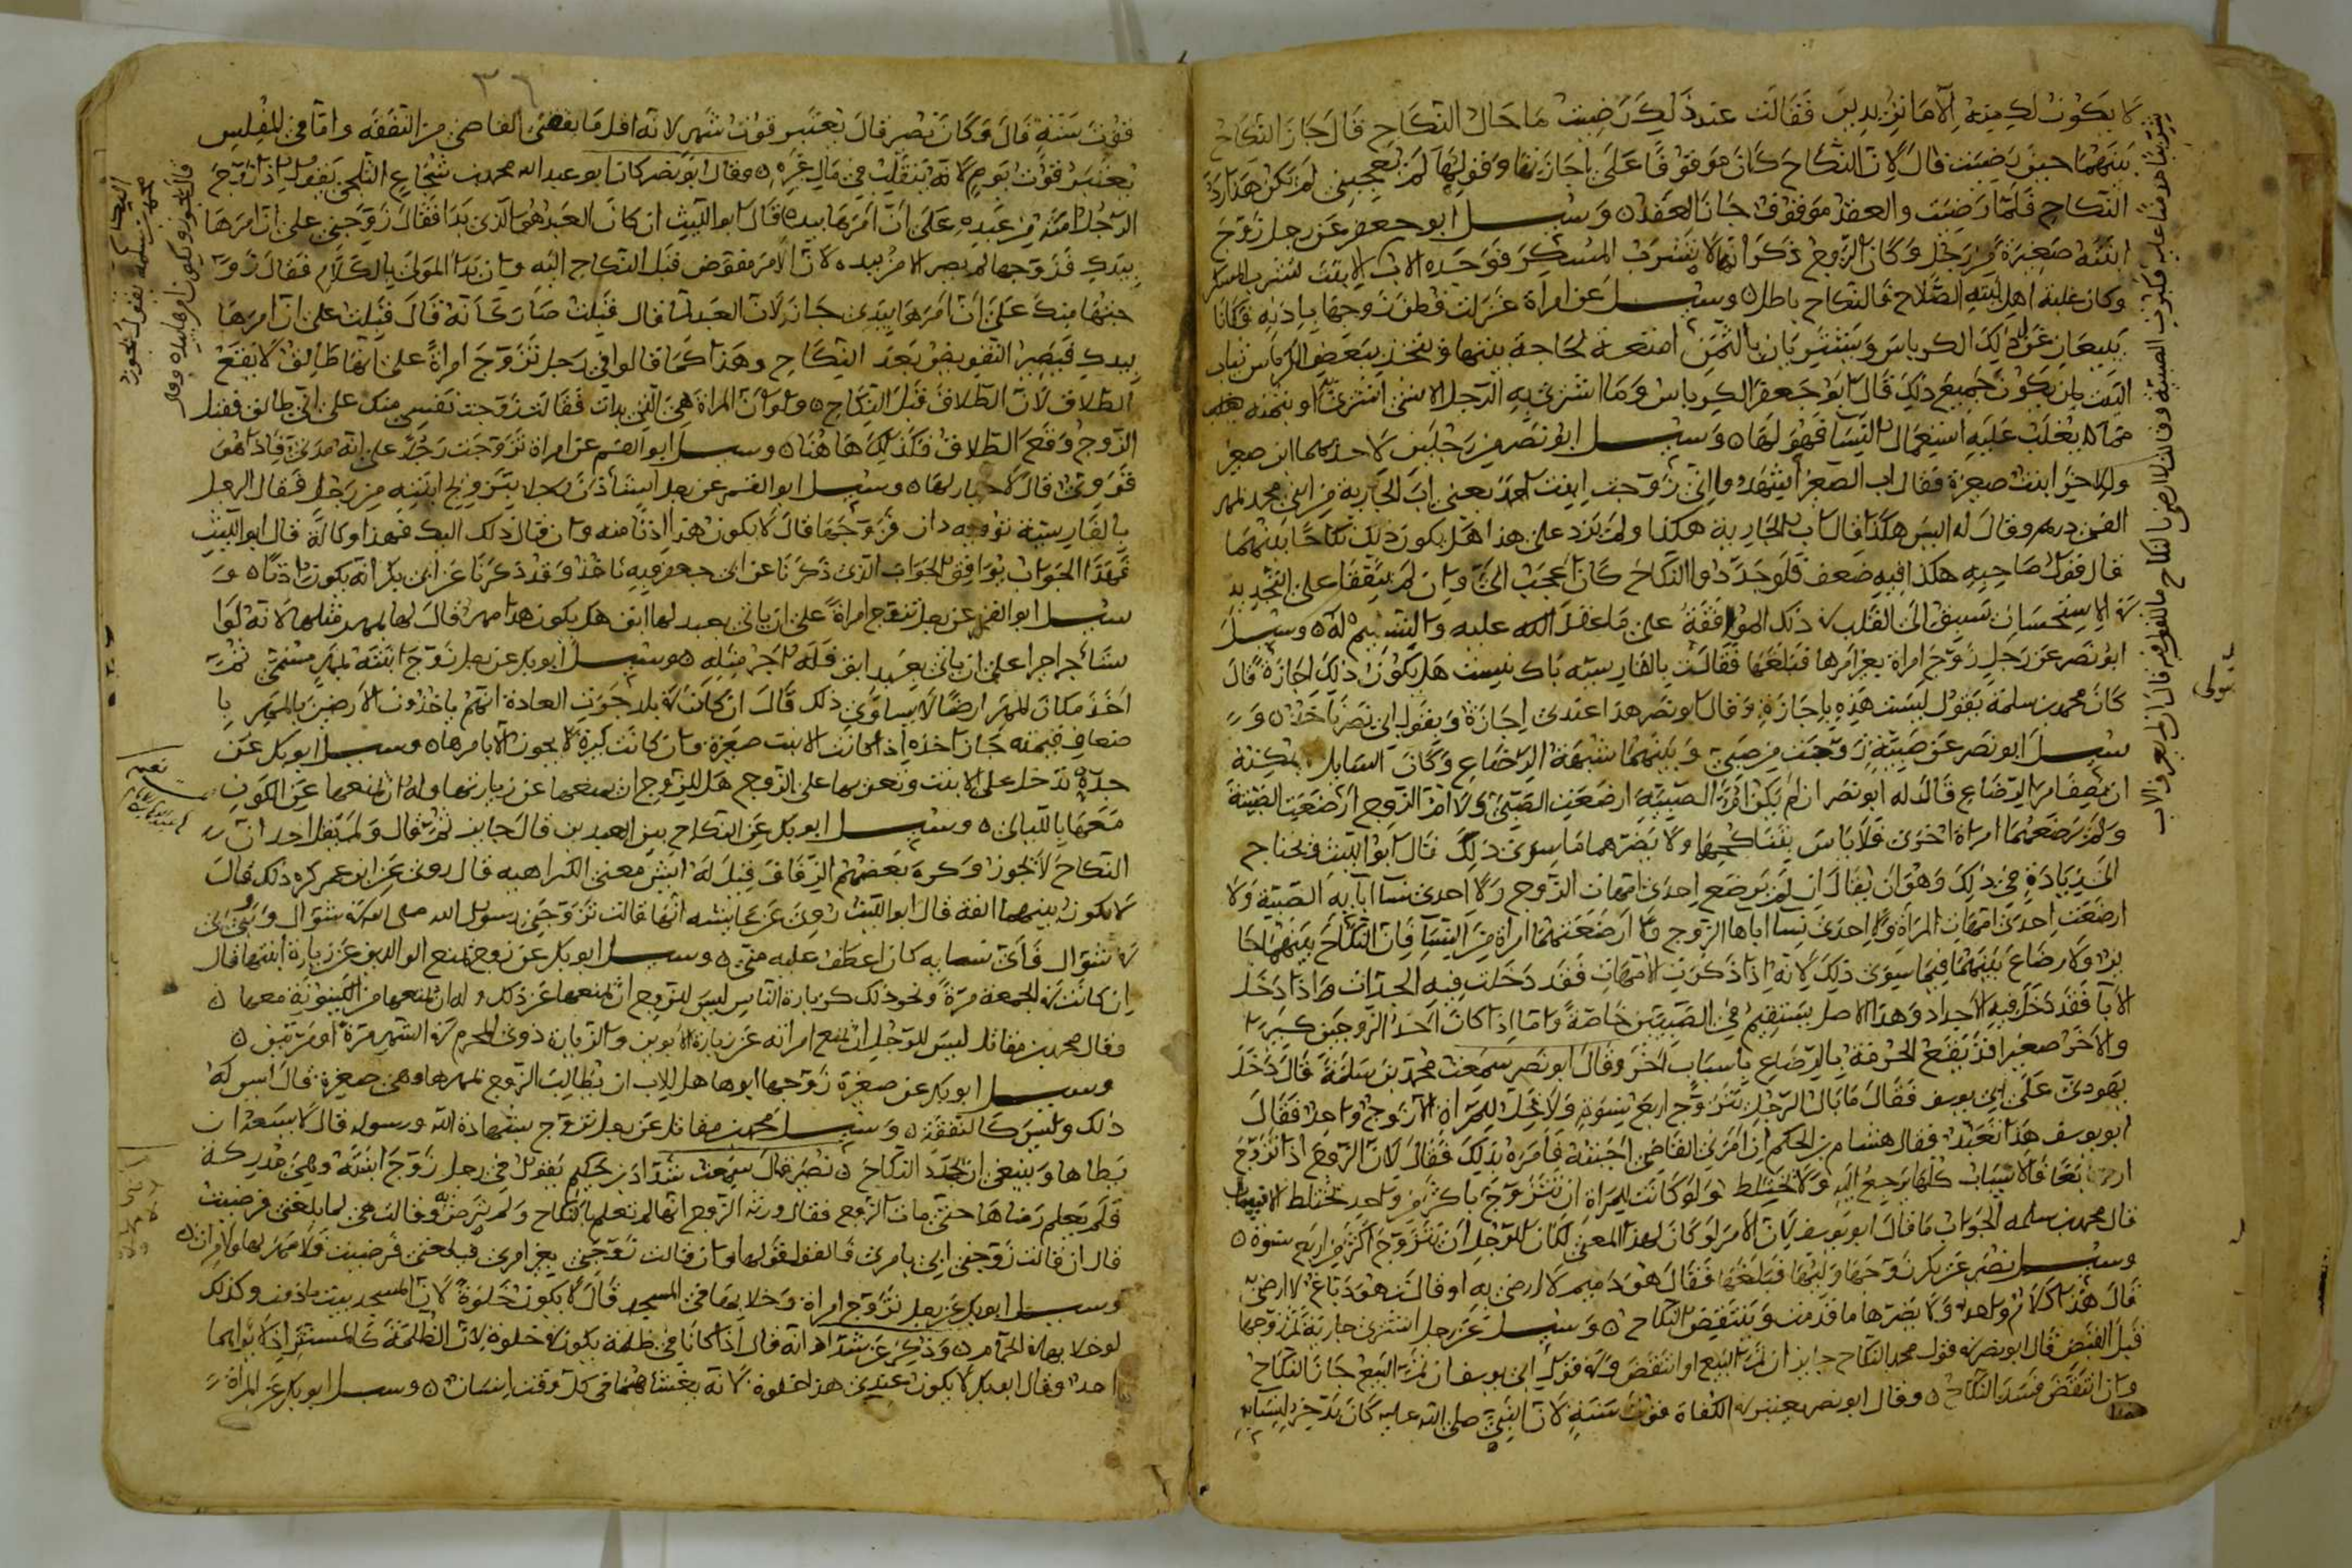 لا يكون لك منه الا ما تريدين فقالت عند ذلك رضيت ما حال النكاح قال جاز النكاح
بينهما حين رضيت قال لان النكاح كان موقوفا على اجازتها وقولها لم يعجبني لم يكن هذا رد
النكاح فلما رضيت والعقد موقوف جاز العقد وسئل ابو جعفر عن رجل زوج
ابنته صغيرة من رجل وكان الزوج ذكر انه لا يشرب المسكر فوجده الاب
وكان غلبة اهل بيته الصلاح فالنكاح باطل وسئل عن امراة غزلت قطن زوجها باذنه وكانا
يبيعان من ذلك الكرباس ويشتريان بالثمن امتعة لحاجة بينهما ويتخذ ببعض الكرباس ثياب
البيت لمن يكون جميع ذلك قال ابو جعفر الكرباس وما اشترى به للرجل الا شئ اشترى
مما يغلب عليه استعمال النسا فهو لها وسئل ابو نصر من رجلين لاحدهما ابن صغير
وللاخر ابنت صغيرة فقال اب الصغير اشهدوا اني زوجت ابنت احمد يعني اب الجارية من ابني محمد بمهر
الفي درهم وقال له اليس هكذا فقال اب الجارية هكذا ولم يزد على هذا هل يكون ذلك نكاحا بينهما
قال فقول صاحبه هكذا فيه ضعف فلو جددوا النكاح كان اعجب الي وان لم يتفقا على التجديد
ففي الاستحسان يسبق الى القلب في ذلك الموافقة على ما عقد الله عليه والتسليم له وسئل
ابو نصر عن رجل زوج امراة بغير امرها فبلغها فقالت بالفارسية باك نيست هل يكون ذلك اجازة قال
كان محمد بن سلمة يقول ليست هذه باجازة وقال ابو نصر هذا عندي اجازة وبقول ابي نصر ناخذ و
سئل ابو نصر عن صبية زوجت من صبي وبينهما شبهة الرضاع وكان السايل يمكنه
ان يصف امر الرضاع قال له ابو نصر ان لم يكن ام الصبية ارضعت الصبي ولا ام الزوج ارضعت الصبية
ولم ترضعهما امراة اخرى فلا باس بتناكحهما ولا يضرهما ما سوى ذلك قال ابو الليث ويحتاج
الى زيادة في ذلك وهو ان يقال ان لم ترضع احدى امهات الزوج ولا احدى نسا ابايه الصبية ولا
ارضعت احدى امهات المراة ولا احدى نسا اباها الزوج ولا ارضعتهما امراة من النسا فان النكاح بينهما جا
يز ولا رضاع بينهما فيما سوى ذلك لانه اذا ذكرت الامهات فقد دخلت فيه الجدات واذا دخل
الابا فقد دخل فيه الاجداد وهذا الاصل يستقيم في الصبيين خاصة واما اذا كان احد الزوجين كبيرا
والاخر صغيرا فقد يقع الحرمة بالرضاع باسباب اخر وقال ابو نصر سمعت محمد بن سلمة قال دخل
يهودي على ابي يوسف فقال ما بال الرجل يتزوج اربع نسوة ولا يحل للمراة الا زوج واحد فقال
ابو يوسف هذا تعبد فقال هشام بن الحكم ان امرني القاضي اجبته فامره بذلك فقال لان الزوج اذا تزوج
اربعا فالانساب كلها يرجع اليه ولا يختلط ولو كانت للمراة ان تتزوج باكثر من واحد تختلط الانساب
قال محمد بن سلمه الجواب ما قال ابو يوسف لان الامر لو كان لهذا المعنى لكان للرجل ان يتزوج اكثر من اربع نسوة
وسئل نصير عن بكر زوجها وليها فبلغها فقال هو دميم لا ارضى به او قالت هو دباغ لا ارضى
قال هذا كلام واحد ولا يضرها ما قدمت وينتقض النكاح وسئل عن رجل اشترى جارية ثم زوجها
قبل القبض قال ابو نصر في قول محمد النكاح جايز ان تم البيع او انتقض وفي قول ابي يوسف ان تم البيع جاز النكاح
وان انتقض فسد النكاح وقال ابو نصر يعتبر في الكفاة قوت سنة لان النبي صلى الله عليه كان يدخر لنسايه
يتولى
٣٦
قوت سنة قال وكان نصير قال يعتبر قوت شهر لانه اقل ما يقضي القاضي من النفقة واما في المفلس
يعتبر قوت يوم لانه يتقلب في مال غيره وقال ابو نصر كان ابو عبد الله محمد بن شجاع الثلجي يقول اذا زوج
الرجل امته من عبده على ان امرها بيده قال ابو الليث ان كان العبد هو الذي بدا فقال زوجني على ان امرها
بيدك فزوجها لم يصر الامر بيده لان الامر مفوض قبل النكاح اليه وان بدا المولى بالكلام فقال زو
جتها منك على ان امرها بيدي جاز لان العبد لما قال قبلت صار كانه قال قبلت على ان امرها
بيدك فيصير التفويض بعد النكاح وهذا كما قالوا في رجل تزوج امراة على انها طالق لا يقع
الطلاق لان الطلاق قبل النكاح ولو ان المراة هي التي بدات فقالت زوجت نفسي منك على اني طالق فقبل
الزوج وقع الطلاق فكذلك هاهنا وسئل ابو القسم عن امراة تزوجت رجلا على انه مدني فاذا هو
قروي قال لا خيار لها وسئل ابو القسم عن رجل استاذن رجلا بتزويج ابنته من رجل فقال الرجل
بالفارسية تو به دان فزوجها قال لا يكون هذا اذنا منه وان قال ذلك اليك فهذا وكالة قال ابو الليث
فهذا الجواب يوافق الجواب الذي ذكرنا عن ابي جعفر فبه ناخذ وقد ذكرنا عن ابي بكر انه يكون اذنا و
سئل ابو القسم عن رجل تزوج امراة على ان ياتي بعبد لها ابق هل يكون هذا مهر قال لها مهر مثلها لانه لو ا
ستاجر اجيرا على ان ياتي بعبد ابق فله اجر مثله وسئل ابو بكر عن رجل زوج ابنته بمهر مسمى ثم
اخذ مكان المهر ارضا لا يساوي ذلك قال ان كانت في بلاد جرت العادة انهم ياخذون الارضين بالمهر با
ضعاف قيمته جاز اخذه اذا كانت الابنت صغيرة وان كانت كبيرة لا يجوز الا بامرها وسئل ابو بكر عن
جدة تدخل على الابنت وتغريها على الزوج هل للزوج ان يمنعها عن زيارتها وله ان يمنعها عن الكون
معها بالليالي وسئل ابو بكر عن النكاح بين العيدين قال جايز ثم قال ولم يقل احد ان
النكاح لا يجوز وكره بعضهم الزفاف قيل له ايش معنى الكراهيه قال روي عن ابن عمر كره ذلك قال
لا يكون بينهما الفة قال ابو الليث روي عن عايشه انها قالت تزوجني رسول الله صلى الله في شوال وبنى بي
في شوال فاي نسايه كان اعطف عليه مني وسئل ابو بكر عن زوج يمنع الوالدين عن زيارة ابنتها قال
ان كانت في الجمعة مرة ونحو ذلك كزيارة الناس ليس للزوج ان يمنعها عن ذلك وله ان يمنعها من الكينونة معها
وقال محمد بن مقاتل ليس للرجل ان يمنع امراته عن زيارة الابوين والزيارة ذوي المحرم في الشهر مرة او مرتين
وسئل ابو بكر عن صغيرة زوجها ابوها هل للاب ان يطالب الزوج بمهرها وهي صغيرة قال ليس له
ذلك وليس كالنفقة وسئل محمد بن مقاتل عن رجل تزوج بشهادة الله ورسوله قال لا يسعه ان
يطاها وينبغي ان يجدد النكاح نصير قال سمعت شداد بن حكيم يقول في رجل زوج ابنته وهي مدركة
فلم يعلم رضاها حتى مات الزوج فقال ورثة الزوج انها لم تعلم بالنكاح ولم ترض وقالت هي لما بلغني فرضيت
قال ان قالت زوجني ابي بامري فالقول قولها وان قالت زوجني بغير امري فبلغني فرضيت فلا مهر لها ولا ميراث
وسئل ابو بكر عن رجل تزوج امراة وخلا بها في المسجد قال لا يكون خلوة لان المسجد بيت ماذون وكذلك
لو خلا بها في الحمام وذكر عن شداد انه قال اذا كانا في ظلمة يكون خلوة لان الظلمة كالمستتر اذ لا يراهما
احد وقال ابو بكر لا يكون عندي هذا خلوة لانه يغشاهما في كل وقت انسان وسئل ابو بكر عن المراة